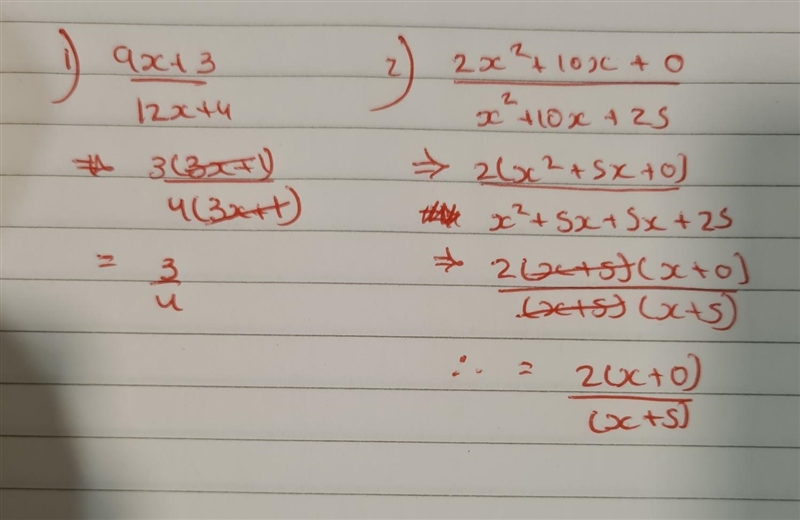 1) 9x+3
12x+4
⇒ 3(3x+1)
4(3x+1)
= 3
4
2) 2x²+10x+0
x²+10x+25
⇒ 2(x²+5x+0)
x²+5x+5x+25
⇒ 2(x+5)(x+0)
(x+5)(x+5)
∴ = 2(x+0)
(x+5)